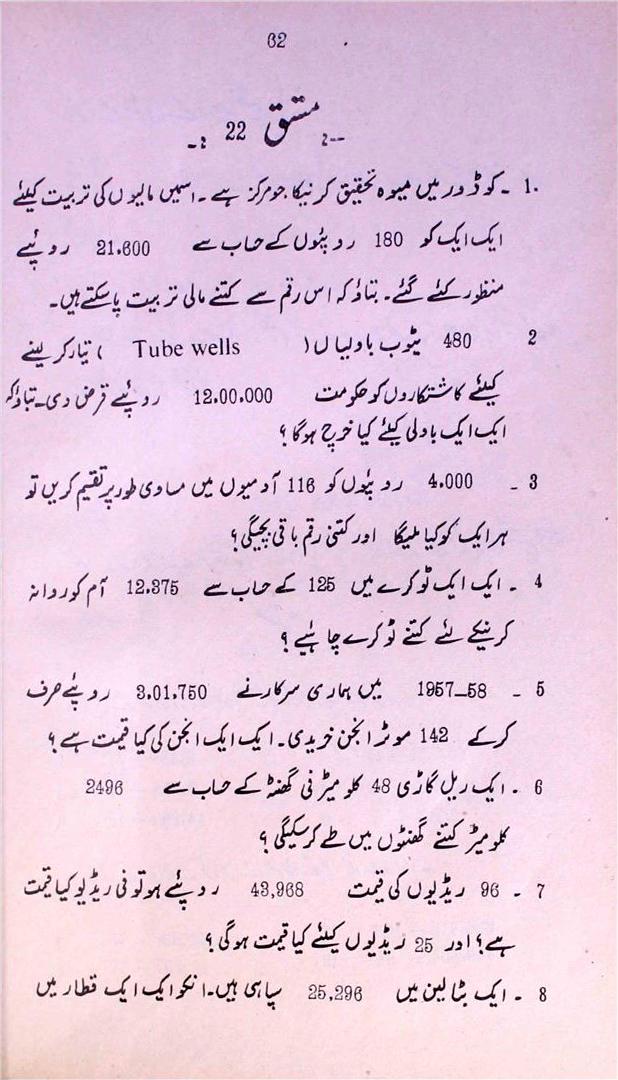 62
-: مشق 22 :-
1. ۔ کوڈور میں میوہ تحقیق کرنیکا جو مرکز ہے ۔ اسمیں مالیوں کی تربیت کیلئے
ایک ایک کو 180 روپئوں کے حساب سے 21.600 روپئے
منظور کئے گئے۔ بتاؤ کہ اس رقم سے کتنے مالی تربیت پاسکتے ہیں۔
2 480 ٹیوب باولیاں ( Tube wells ) تیار کرلینے
کیلئے کاشتکاروں کو حکومت 12.00.000 روپئے قرض دی۔ بتاؤ کہ
ایک ایک باولی کیلئے کیا خرچ ہوگا ؟
3 ۔ 4.000 روپئوں کو 116 آدمیوں میں مساوی طور پر تقیم کریں تو
ہر ایک کو کیا ملیگا اور کتنی رقم باقی بچیگی ؟
4 ۔ ایک ایک ٹوکرے میں 125 کے حساب سے 12.375 آم کو روانہ
کرنیکے لئے کتنے ٹوکرے چاہئیے ؟
5 ۔ 1957-58 میں ہماری سرکار نے 3.01.750 روپئے صرف
کرکے 142 موٹر انجن خریدی۔ ایک ایک انجن کی کیا قیمت ہے ؟
6 ۔ ایک ریل گاڑی 48 کلو میٹر فی گھنٹہ کے حساب سے 2496
کلو میٹر کتنے گھنٹوں میں طے کرسکیگی ؟
7 ۔ 96 ریڈیوں کی قیمت 43,968 روپئے ہو تو فی ریڈیو کیا قیمت
ہے ؟ اور 25 ریڈیوں کیلئے کیا قیمت ہوگی ؟
8 ۔ ایک بٹالین میں 25,296 سپاہی ہیں۔ انکو ایک ایک قطار میں